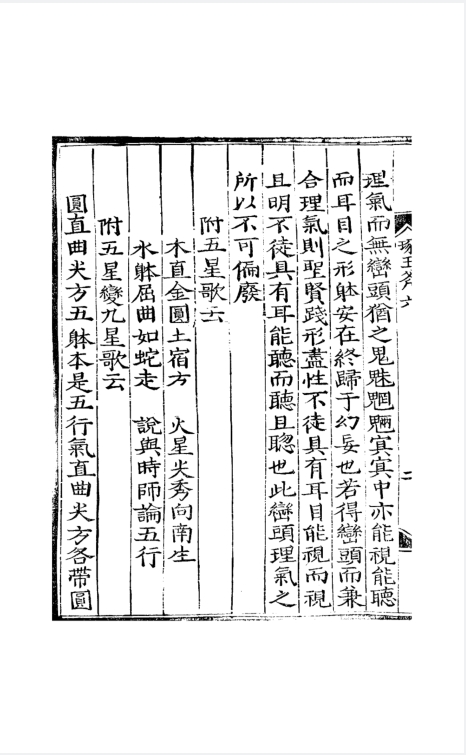 琢玉斧六
二
理氣而無巒頭猶之鬼魅魍魎㝠㝠中亦能視能聽
而耳目之形躰安在終歸于幻妄也若得巒頭而兼
合理氣則聖賢踐形盡性不徒具有耳目能視而視
且明不徒具有耳能聽而聽且聰也此巒頭理氣之
所以不可偏廢
附五星歌云
木直金圓土宿方　火星尖秀向南生
水躰屈曲如蛇走　說與時師論五行
附五星變九星歌云
圓直曲尖方五躰本是五行氣直曲尖方各帶圓